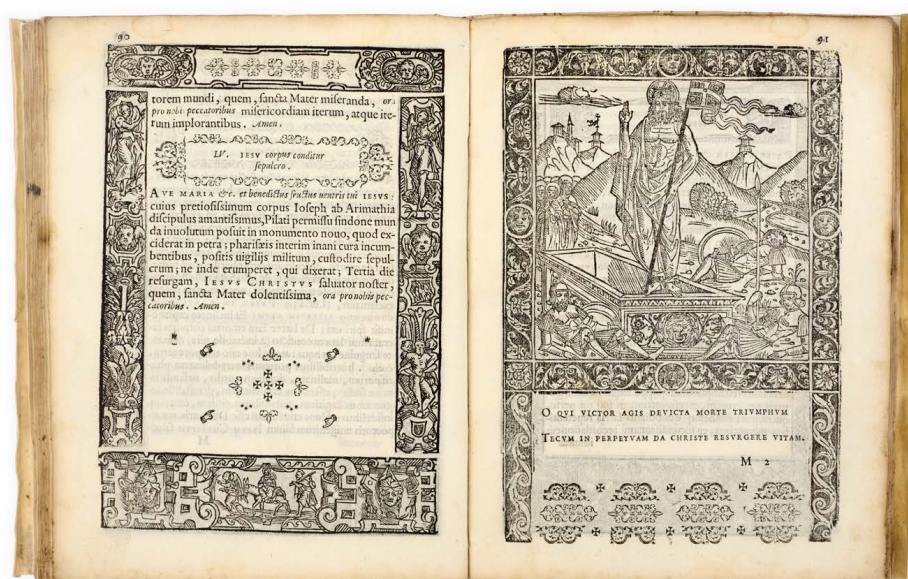 90
torem mundi, quem, sancta Mater miseranda, ora
pro nobis peccatoribus misericordiam iterum, atque ite-
rum implorantibus. Amen.
LV. IESV corpus conditur
sepulcro.
AVE MARIA &c. et benedictus fructus uentris tui IESVS:
cuius pretiosissimum corpus Ioseph ab Arimathia
discipulus amantissimus, Pilati permissu sindone mun
da inuolutum posuit in monumento nouo, quod ex-
ciderat in petra; pharisæis interim inani cura incum-
bentibus, positis uigilijs militum, custodire sepul-
crum; ne inde erumperet, qui dixerat; Tertia die
resurgam, IESVS CHRISTVS saluator noster,
quem, sancta Mater dolentissima, ora pro nobis pec-
catoribus. Amen.
91
O QVI VICTOR AGIS DEVICTA MORTE TRIVMPHVM
TECVM IN PERPETVAM DA CHRISTE RESVRGERE VITAM.
M 2